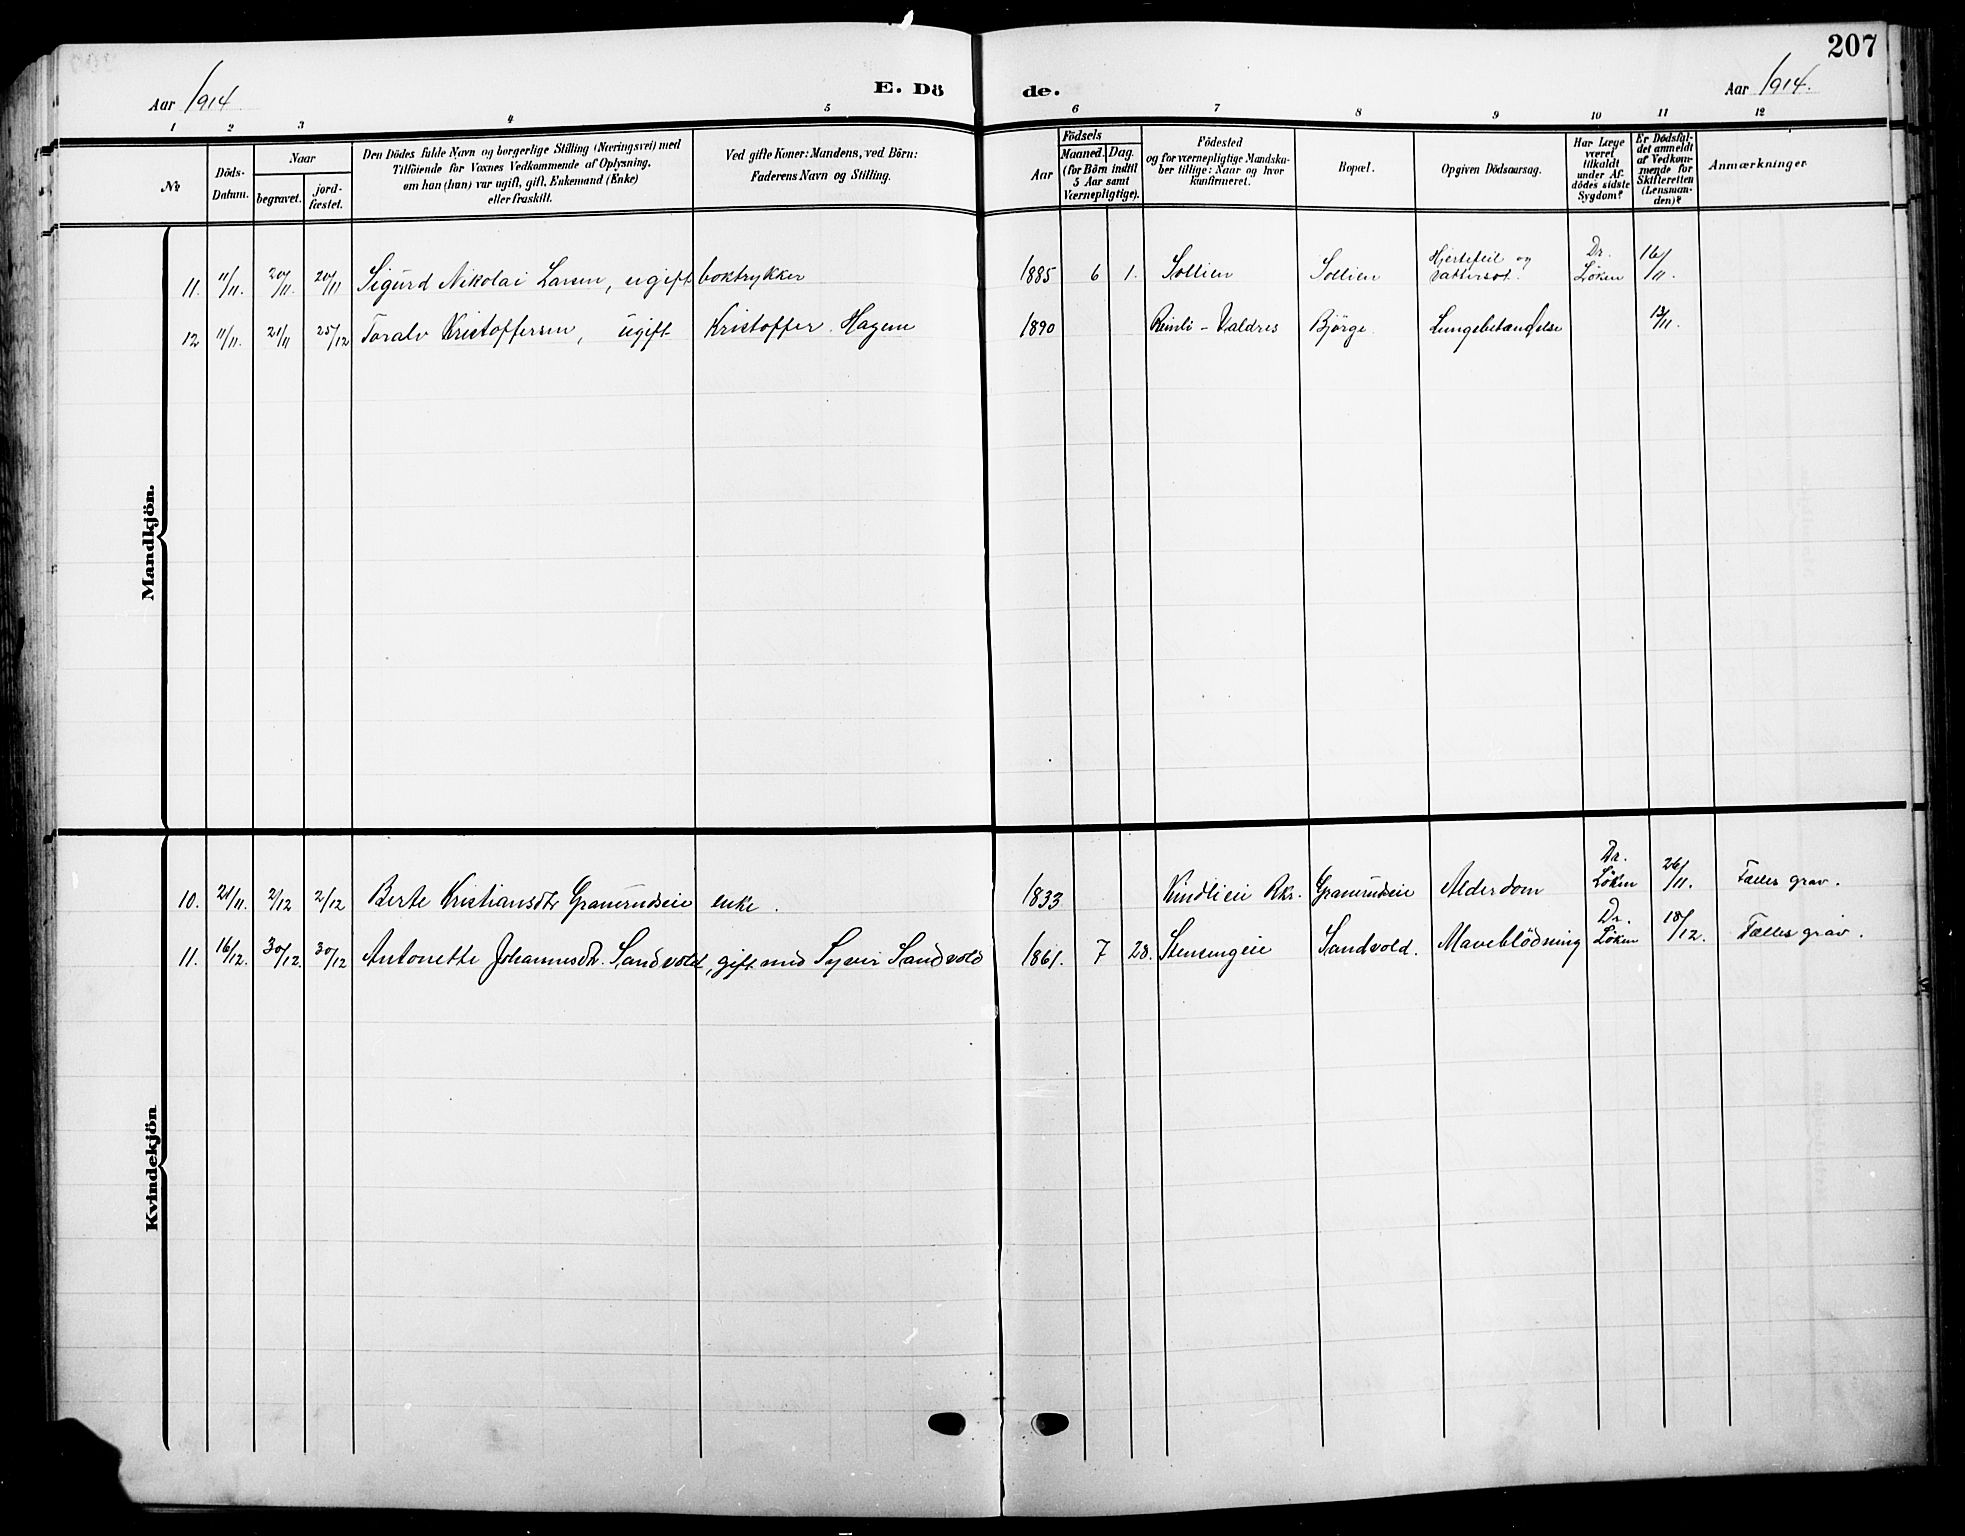 207
Aar 1914
E. Dö
de.
Aar 1914.
1 2 3 4 5 6 7 8 9 10 11 12
№
Döds-
Datum.
Naar
begravet.
jord-
fæstet.
Den Dödes fulde Navn og borgerlige Stilling (Næringsvei) med
Tilföiende for Voxnes Vedkommende af Oplysning,
om han (hun) var ugift, gift, Enkemand (Enke)
eller fraskilt.
Ved gifte Koner: Mandens, ved Börn:
Faderens Navn og Stilling.
Födsels
Aar
Maaned. Dag.
(for Börn indtil
5 Aar samt
Værnepligtige).
Födested
og for værnepligtige Mandska-
ber tillige: Naar og hvor
konfirmeret.
Bopæl.
Opgiven Dödsaarsag.
Har Læge
været
tilkaldt
under Af-
dödes sidste
Sygdom?
Er Dödsfal-
det anmeldt
af Vedkom-
mende for
Skifteretten
(Lensman-
den)?
Anmærkninger
Mandkjön.
11. 11/11. 20/11. 20/11 Sigurd Nikolai Larsen, ugift boktrykker 1885 6 1. Sollien Sollien Hjertefeil og vattersot. Dr. Løken 16/11.
12 11/11. 21/11 25/12 Toralv Kristoffersen, ugift Kristoffer Hagene 1890 Reinli - Valdres Bjørge. Lungebetændelse 13/11.
Kvindekjön
10. 21/11. 2/12 2/12 Berte Kristiansdtr Granerudseie enke. 1833 Kindlieie Rkr. Granrudseie Alderdom Dr. Løken 26/11. Fælles grav.
11. 16/12. 30/12. 30/12 Antonette Johannesdtr. Sandvold, gift med Syver Sandvold 1861. 7 28. Stensengeie Sandvold. Maveblödning Dr. Løken 18/12. Fælles grav.